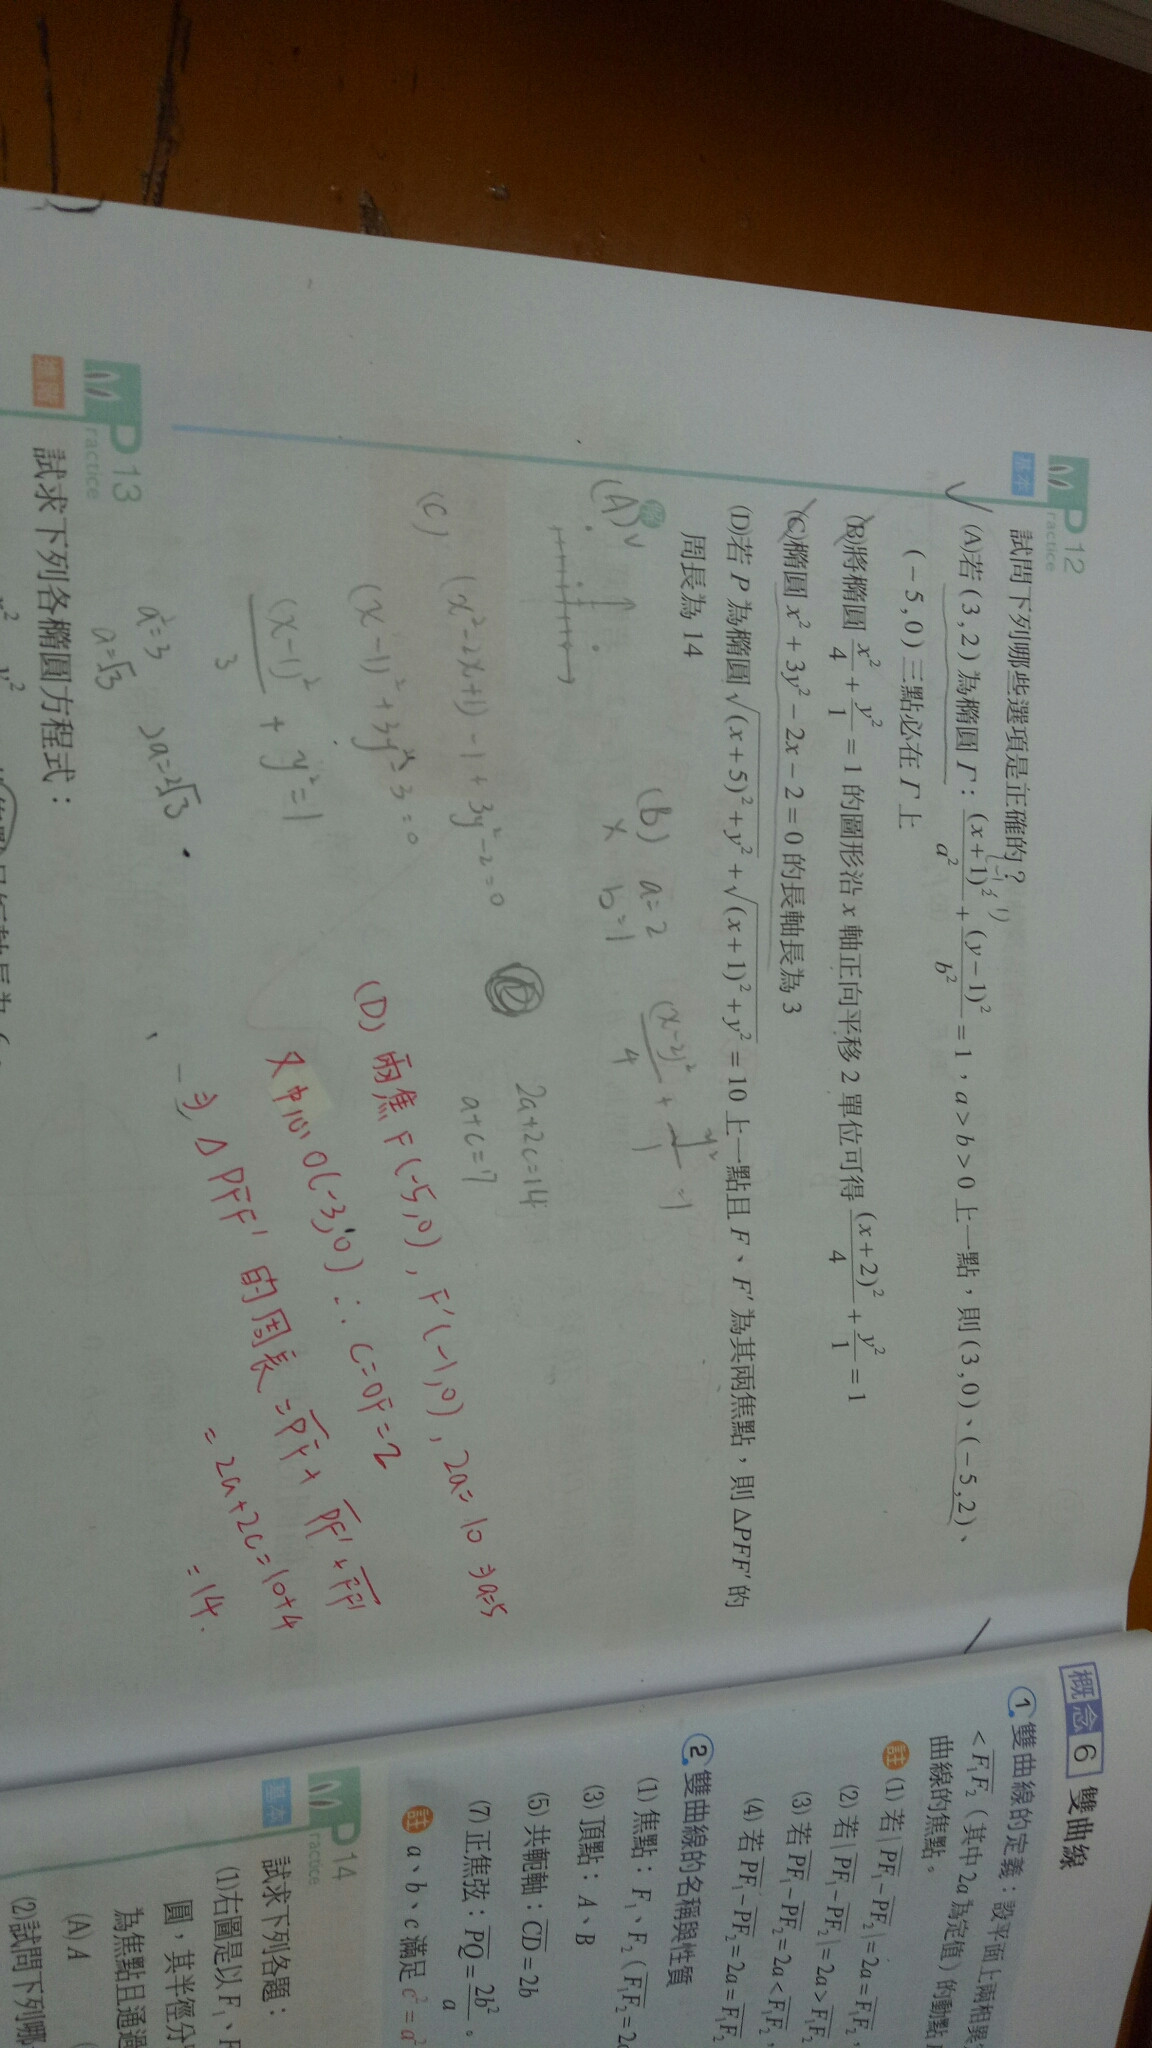 Practice 12
基本
試問下列哪些選項是正確的？
(A)若(3,2)為橢圓Γ：(x+1)²/a²+(y-1)²/b²=1，a>b>0上一點，則(3,0)、(-5,2)、
(-5,0)三點必在Γ上
(B)將橢圓x²/4+y²/1=1的圖形沿x軸正向平移2單位可得(x+2)²/4+y²/1=1
(C)橢圓x²+3y²-2x-2=0的長軸長為3
(D)若P為橢圓√((x+5)²+y²)+√((x+1)²+y²)=10上一點且F、F′為其兩焦點，則ΔPFF′的
周長為14
解
(A) v
(B) a=2
x b=1
(x-2)²/4+y²/1=1
(C)
(x²-2x+1)-1+3y²-2=0
(x-1)²+3y²-3=0
(x-1)²/3+y²=1
a²=3
a=√3
2a=2√3
2a+2c=14
a+c=7
(D) 兩焦F(-5,0), F'(-1,0), 2a=10⇒a=5
又中心O(-3,0)∴c=OF=2
⇒ΔPFF'的周長=PF+PF'+FF'
=2a+2c=10+4
=14.
Practice 13
試求下列各橢圓方程式：
概念6 雙曲線
1 雙曲線的定義：設平面上兩相異
<F₁F₂（其中2a為定值）的動點
曲線的焦點。
註 (1)若|PF₁-PF₂|=2a=F₁F₂，
(2)若|PF₁-PF₂|=2a>F₁F₂
(3)若PF₁-PF₂=2a<F₁F₂，
(4)若PF₁-PF₂=2a=F₁F₂
2 雙曲線的名稱與性質
(1)焦點：F₁、F₂（F₁F₂=2
(3)頂點：A、B
(5)共軛軸：CD=2b
(7)正焦弦：PQ=2b²/a。
註 a、b、c滿足c²=a²
Practice 14
基本
試求下列各題：
(1)右圖是以F₁、F
圓，其半徑分
為焦點且通過
(A)A
(2)試問下列哪